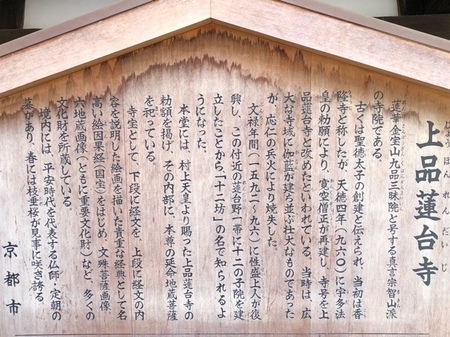 上品蓮台寺
じょうぼんれんだいじ
蓮華金宝山九品三昧院と号する真言宗智山派
の寺院である。
古くは聖徳太子の創建と伝えられ、当初は香
隆寺と称したが、天徳四年(九六〇)に宇多法
皇の勅願により、寛空僧正が再建し、寺号を上
品蓮台寺と改めたといわれている。当時は、広
大な寺域に伽藍が建ち並ぶ壮大なものであった
が、応仁の兵火により焼失した。
文禄年間(一五九二〜九六)に性盛上人が復
興し、この付近の蓮台野一帯に十二の子院を建
立したことから「十二坊」の名でみられるよ
うになった。
本堂には、村上天皇より賜った上品蓮台寺の
勅額を掲げ、その内部に、本尊の延命地蔵菩薩
を祀っている。
寺宝として、下段に経文を、上段に経文の内
容を説明した絵画を描いた貴重な経典として名
高い絵因果経(国宝)をはじめ、文殊菩薩画像
六地蔵画像(ともに重要文化財)など、多くの
文化財を所蔵している。
境内には、平安時代を代表する仏師・定朝の
墓があり、春には枝垂桜が見事に咲き誇る。
京都市